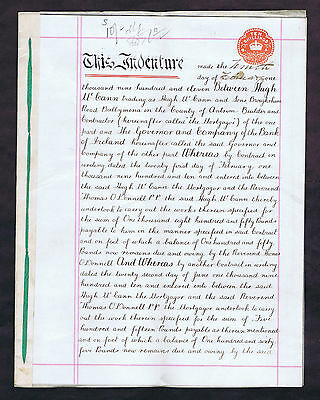 This Indenture made the
day of one
thousand nine hundred and eleven Between Hugh
McCann trading as Hugh McCann and Sons Broughshane
Road Ballymena in the County of Antrim Builder and
Contractor (hereinafter called the Mortgagor) of the one
part and The Governor and Company of the Bank
of Ireland hereinafter called the said Governor and
Company of the other part Whereas by Contract in
writing dated the twenty first day of February one
thousand nine hundred and ten and entered into between
the said Hugh McCann the Mortgagor and the Reverend
Thomas O'Donnell P.P. the said Hugh McCann thereby
undertook to carry out the works therein specified for
the sum of One thousand eight hundred and fifty pounds
payable to him in the manner specified in said Contract
and on foot of which a balance of One hundred and fifty
pounds now remains due and owing by the Reverend Thomas
O'Donnell And Whereas by another Contract in writing
dated the twenty second day of June one thousand nine
hundred and ten and entered into between the said
Hugh McCann the Mortgagor and the said Reverend
Thomas O'Donnell P.P. the Mortgagor undertook to carry
out the work therein specified for the sum of Five
hundred and fifteen Pounds payable as therein mentioned
and on foot of which a balance of One hundred and sixty
four Pounds now remains due and owing by the said